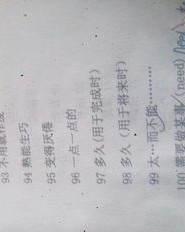 93 不用
94 熟能生巧
95 变得厌倦
96 一点一点的
97 多久(用于完成时)
98 多久(用于将来时)
99 太…而不能………
100 需要做某事(need)